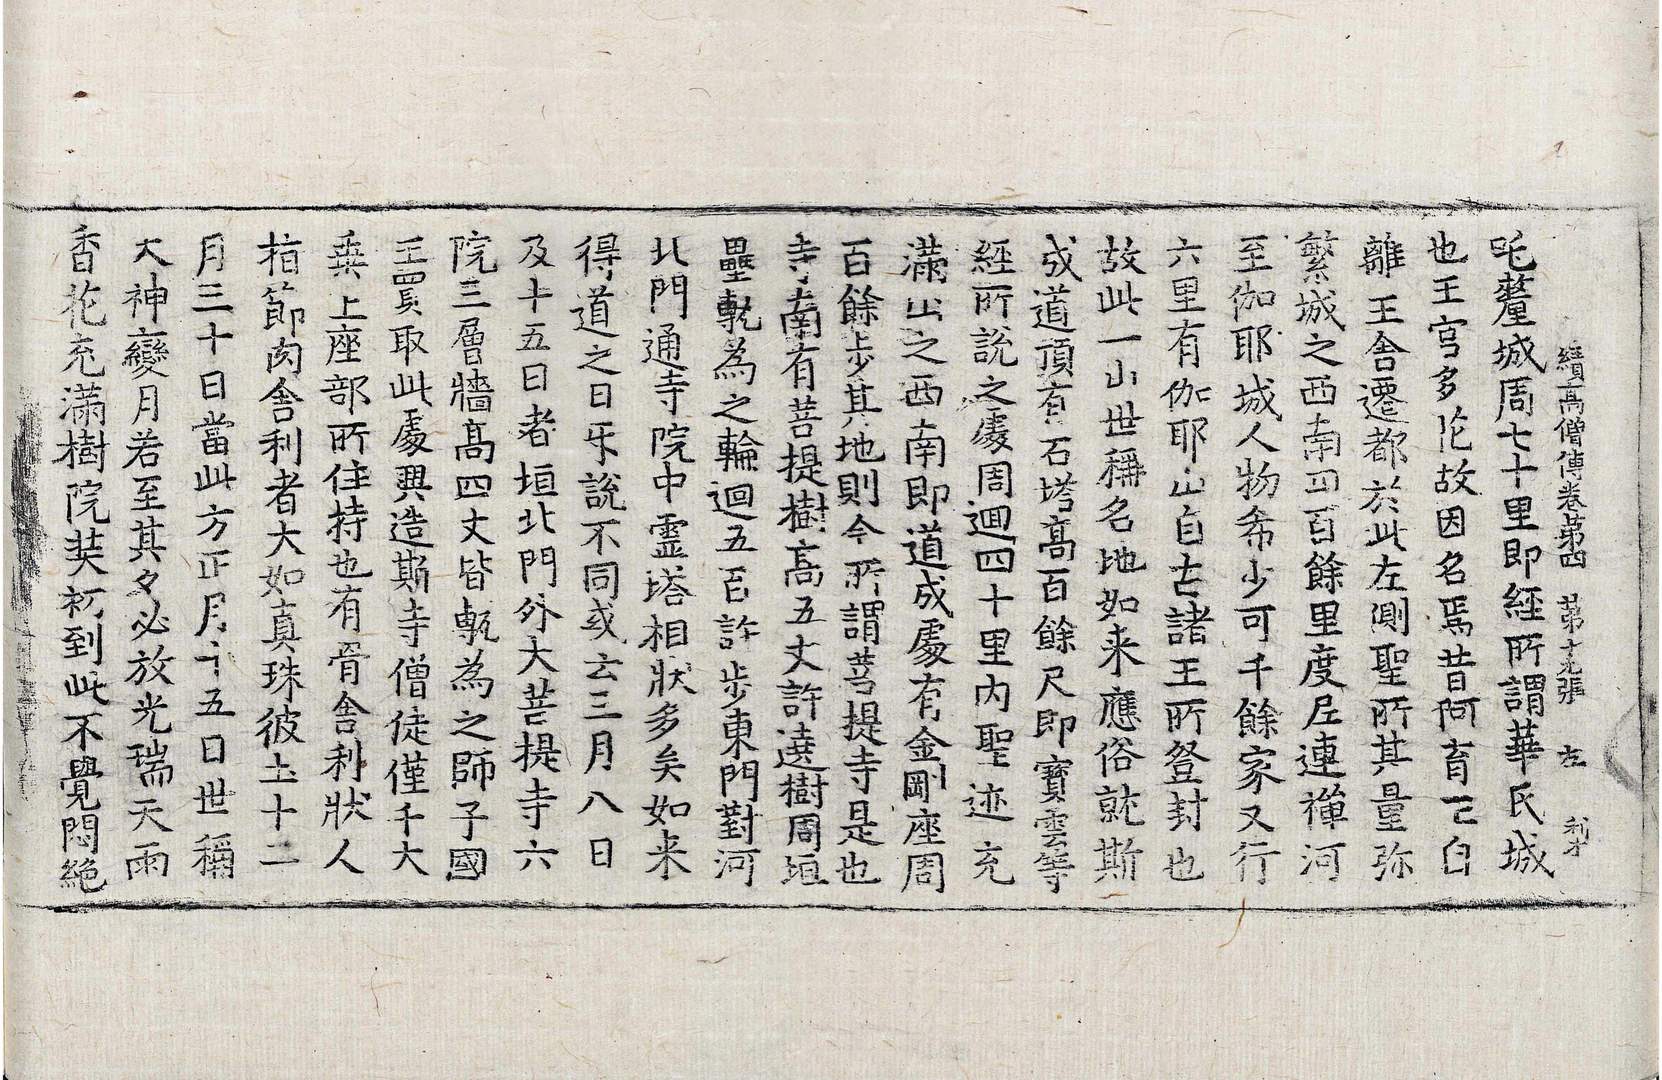 續高僧傳卷第四　第十九張　左　利才
吒釐城周七十里即經所謂華氏城
也王宮多花故因名焉昔阿育王自
離王舍遷都於此左側聖所其量弥
繁城之西南四百餘里度尼連禪河
至伽耶城人物希少可千餘家又行
六里有伽耶山自古諸王所登封也
故此一山世稱名地如来應俗就斯
成道頂有石塔高百餘尺即寶雲等
經所說之處周迴四十里內聖迹充
滿山之西南即道成處有金剛座周
百餘步其地則今所謂菩提寺是也
寺南有菩提樹高五丈許遶樹周垣
壘甎為之輪迴五百許步東門對河
北門通寺院中靈塔相狀多矣如来
得道之日互說不同或云三月八日
及十五日者垣北門外大菩提寺六
院三層牆高四丈皆甎為之師子國
王買取此處興造斯寺僧徒僅千大
乗上座部所住持也有骨舍利狀人
指節肉舍利者大如真珠彼土十二
月三十日當此方正月十五日世稱
大神變月若至其夕必放光瑞天雨
香花充滿樹院奘初到此不覺悶絕